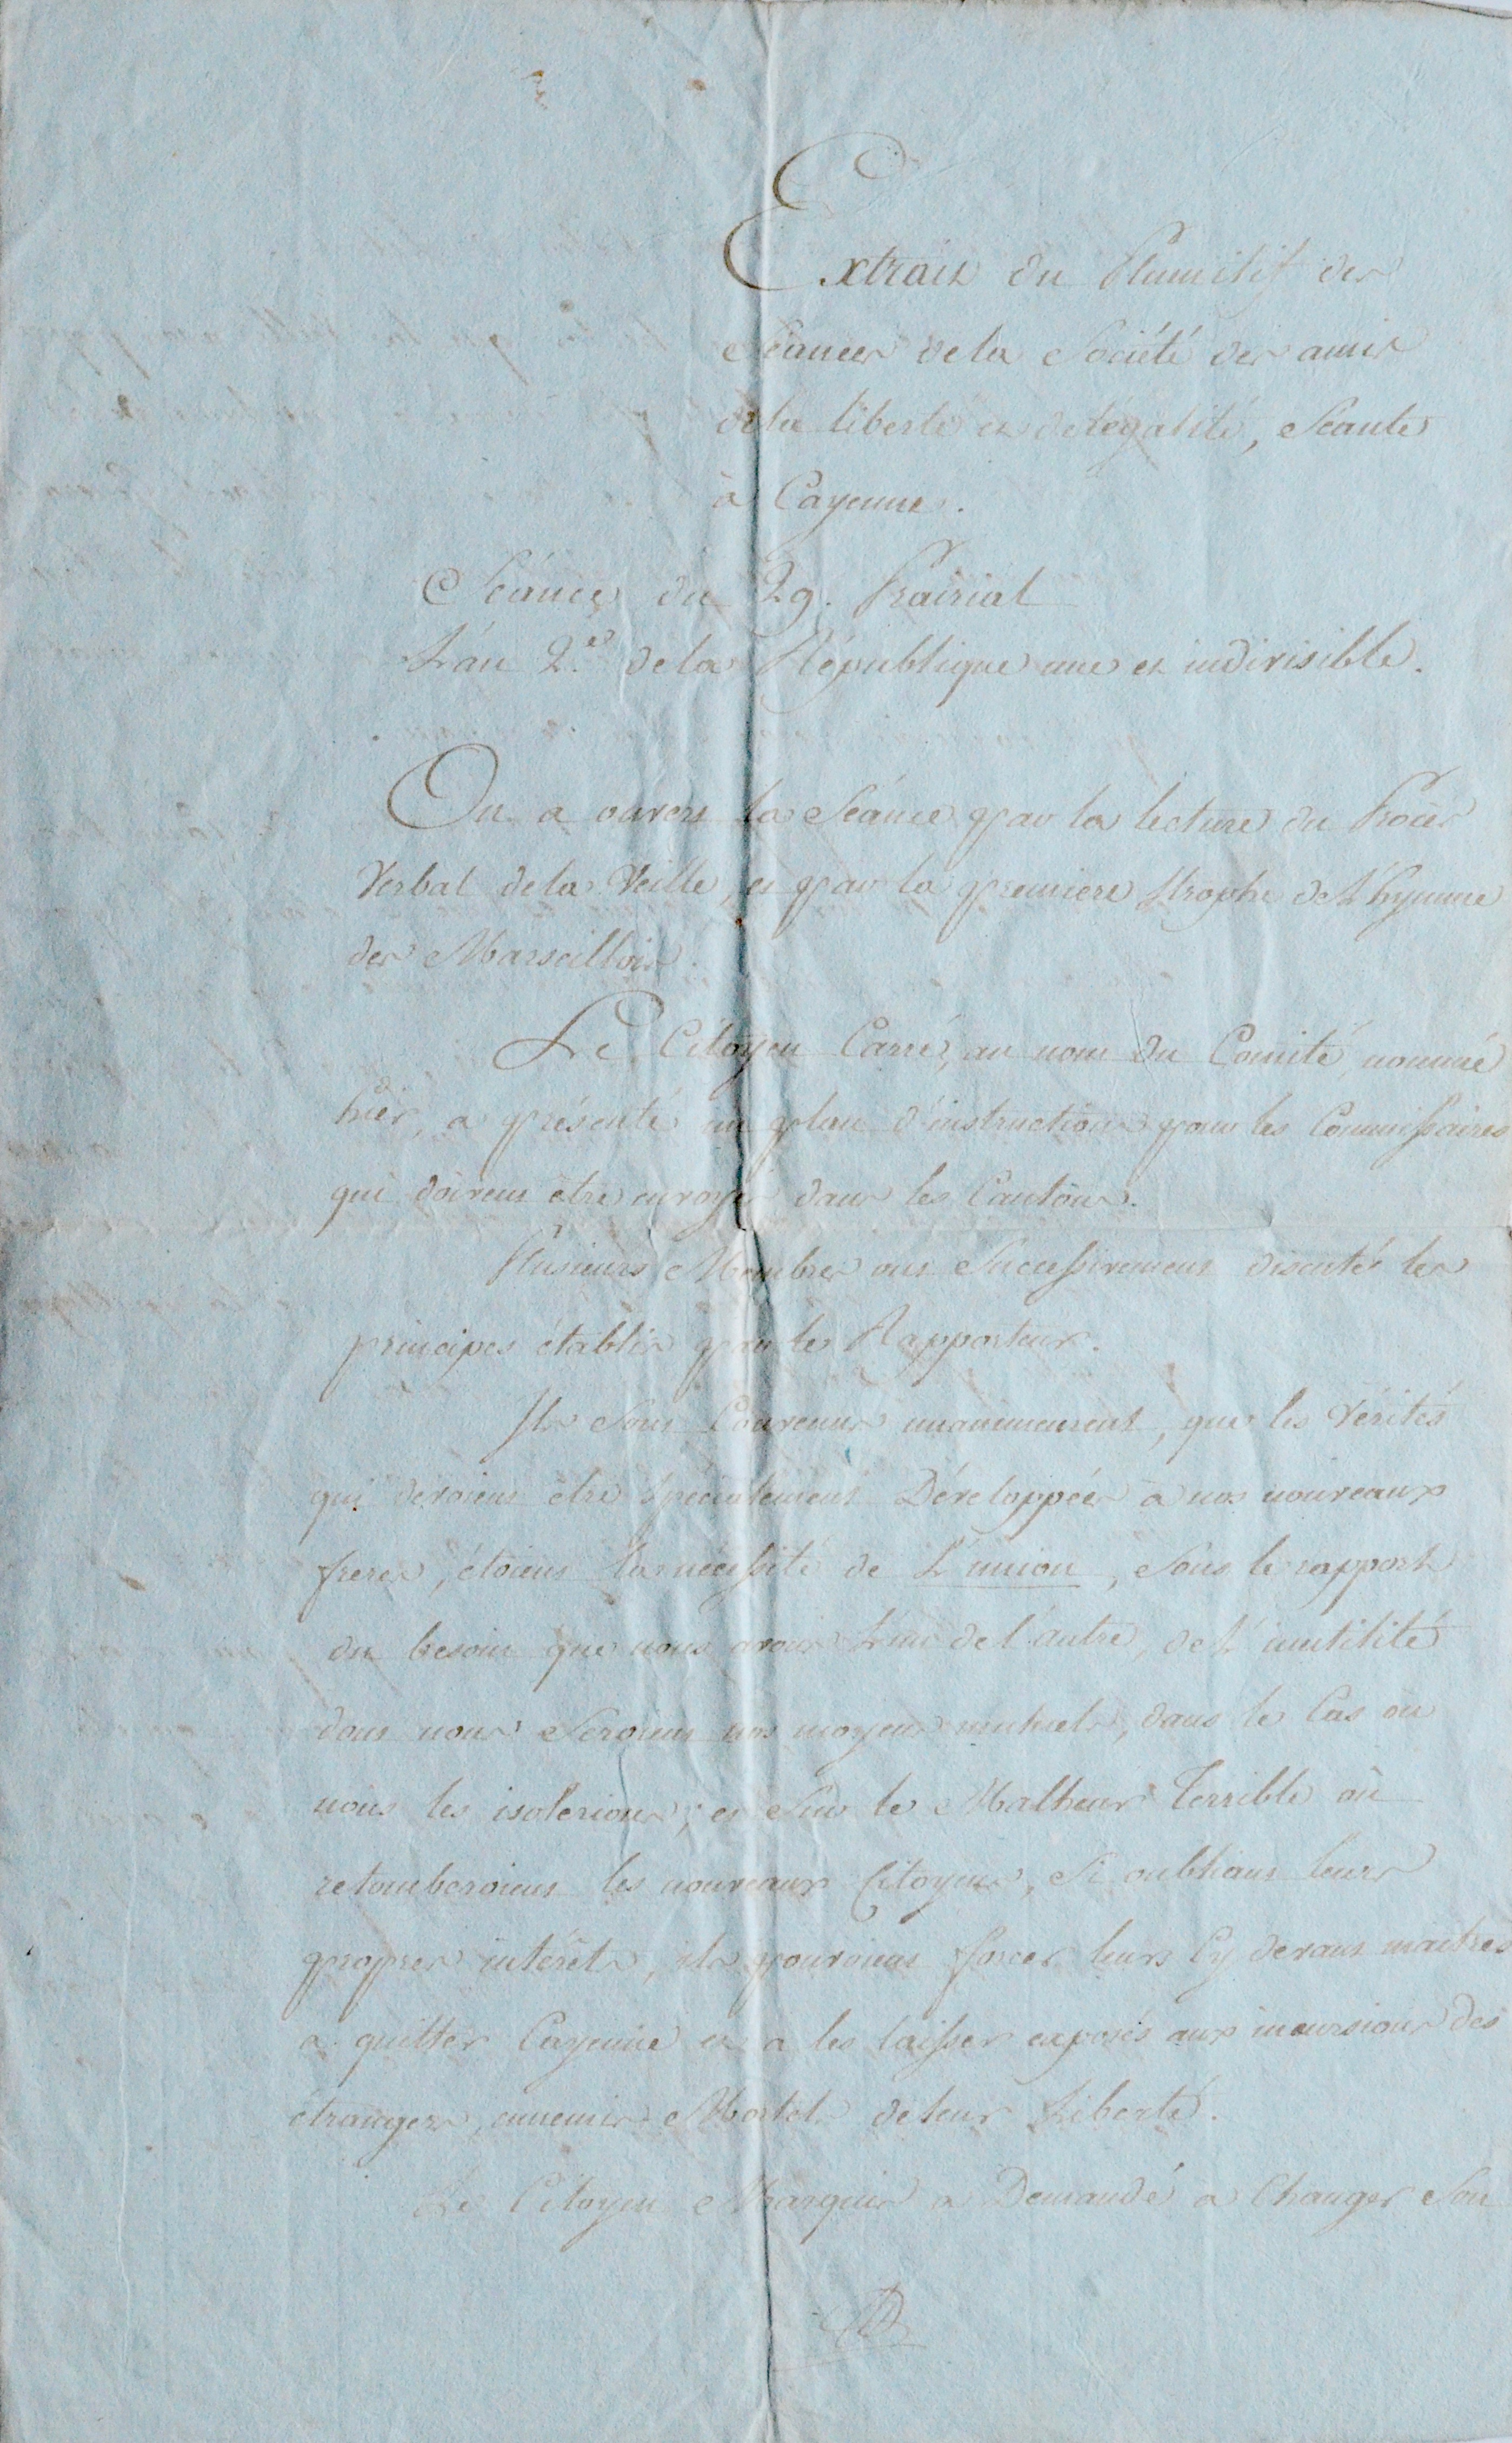 Extrait du Plumitif des
Séances de la Société des amis
de la liberté et de légalité, Séante
à Cayenne.
Séance du 29. Prairial
L'an 2.e de la République une et indivisible.
On a ouvert la Séance par la lecture du Procès
Verbal de la Veille, et par la premiere strophe de L'hymne
des Marseillois.
Le Citoyen Carré, au nom du Comité nommé
hier, a présenté un plan d'instruction pour les Commissaires
qui doivent être envoyés dans les Cantons.
Plusieurs Membres ont Successivement discuté les
principes établis par le Rapporteur.
Ils Sont Convenus unanimement, que les Vérités
qui devoient être spécialement Développées à nos nouveaux
freres, étoient la nécessité de L'union, Sous le rapport
du besoin que nous avons L'un de l'autre, de L'inutilité
dont nous Seroient nos moyens mutuels, dans le Cas où
nous les isolerions; et Sur le Malheur Terrible où
retomberoient les nouveaux Citoyens, Si oubliant leurs
propres intérêts, ils pouvoient forcer leurs Cy devant maitres
a quitter Cayenne et a les laisser exposés aux incursions des
étrangers, ennemis Mortels de leur Liberté.
Le Citoyen Marquis a Demandé a Changer Son